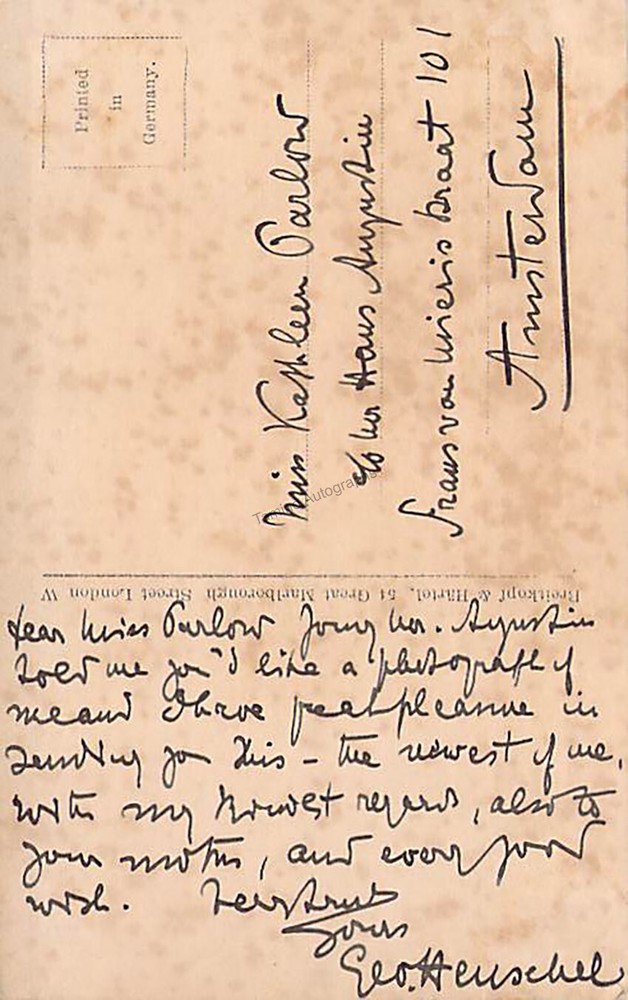 Printed
in
Germany.
Miss Kathleen Parlow
c/o Mr Hans Augustin
Frans van Mieris straat 101
Amsterdam
Breitkopf & Härtel, 54 Great Marlborough Street London W
Dear Miss Parlow Young Mr. Augustin
told me you'd like a photograph of
me and I have great pleasure in
sending you this – the newest of me,
with my kindest regards, also to
your mother, and every good
wish. Very truly
Yours
Geo. Henschel